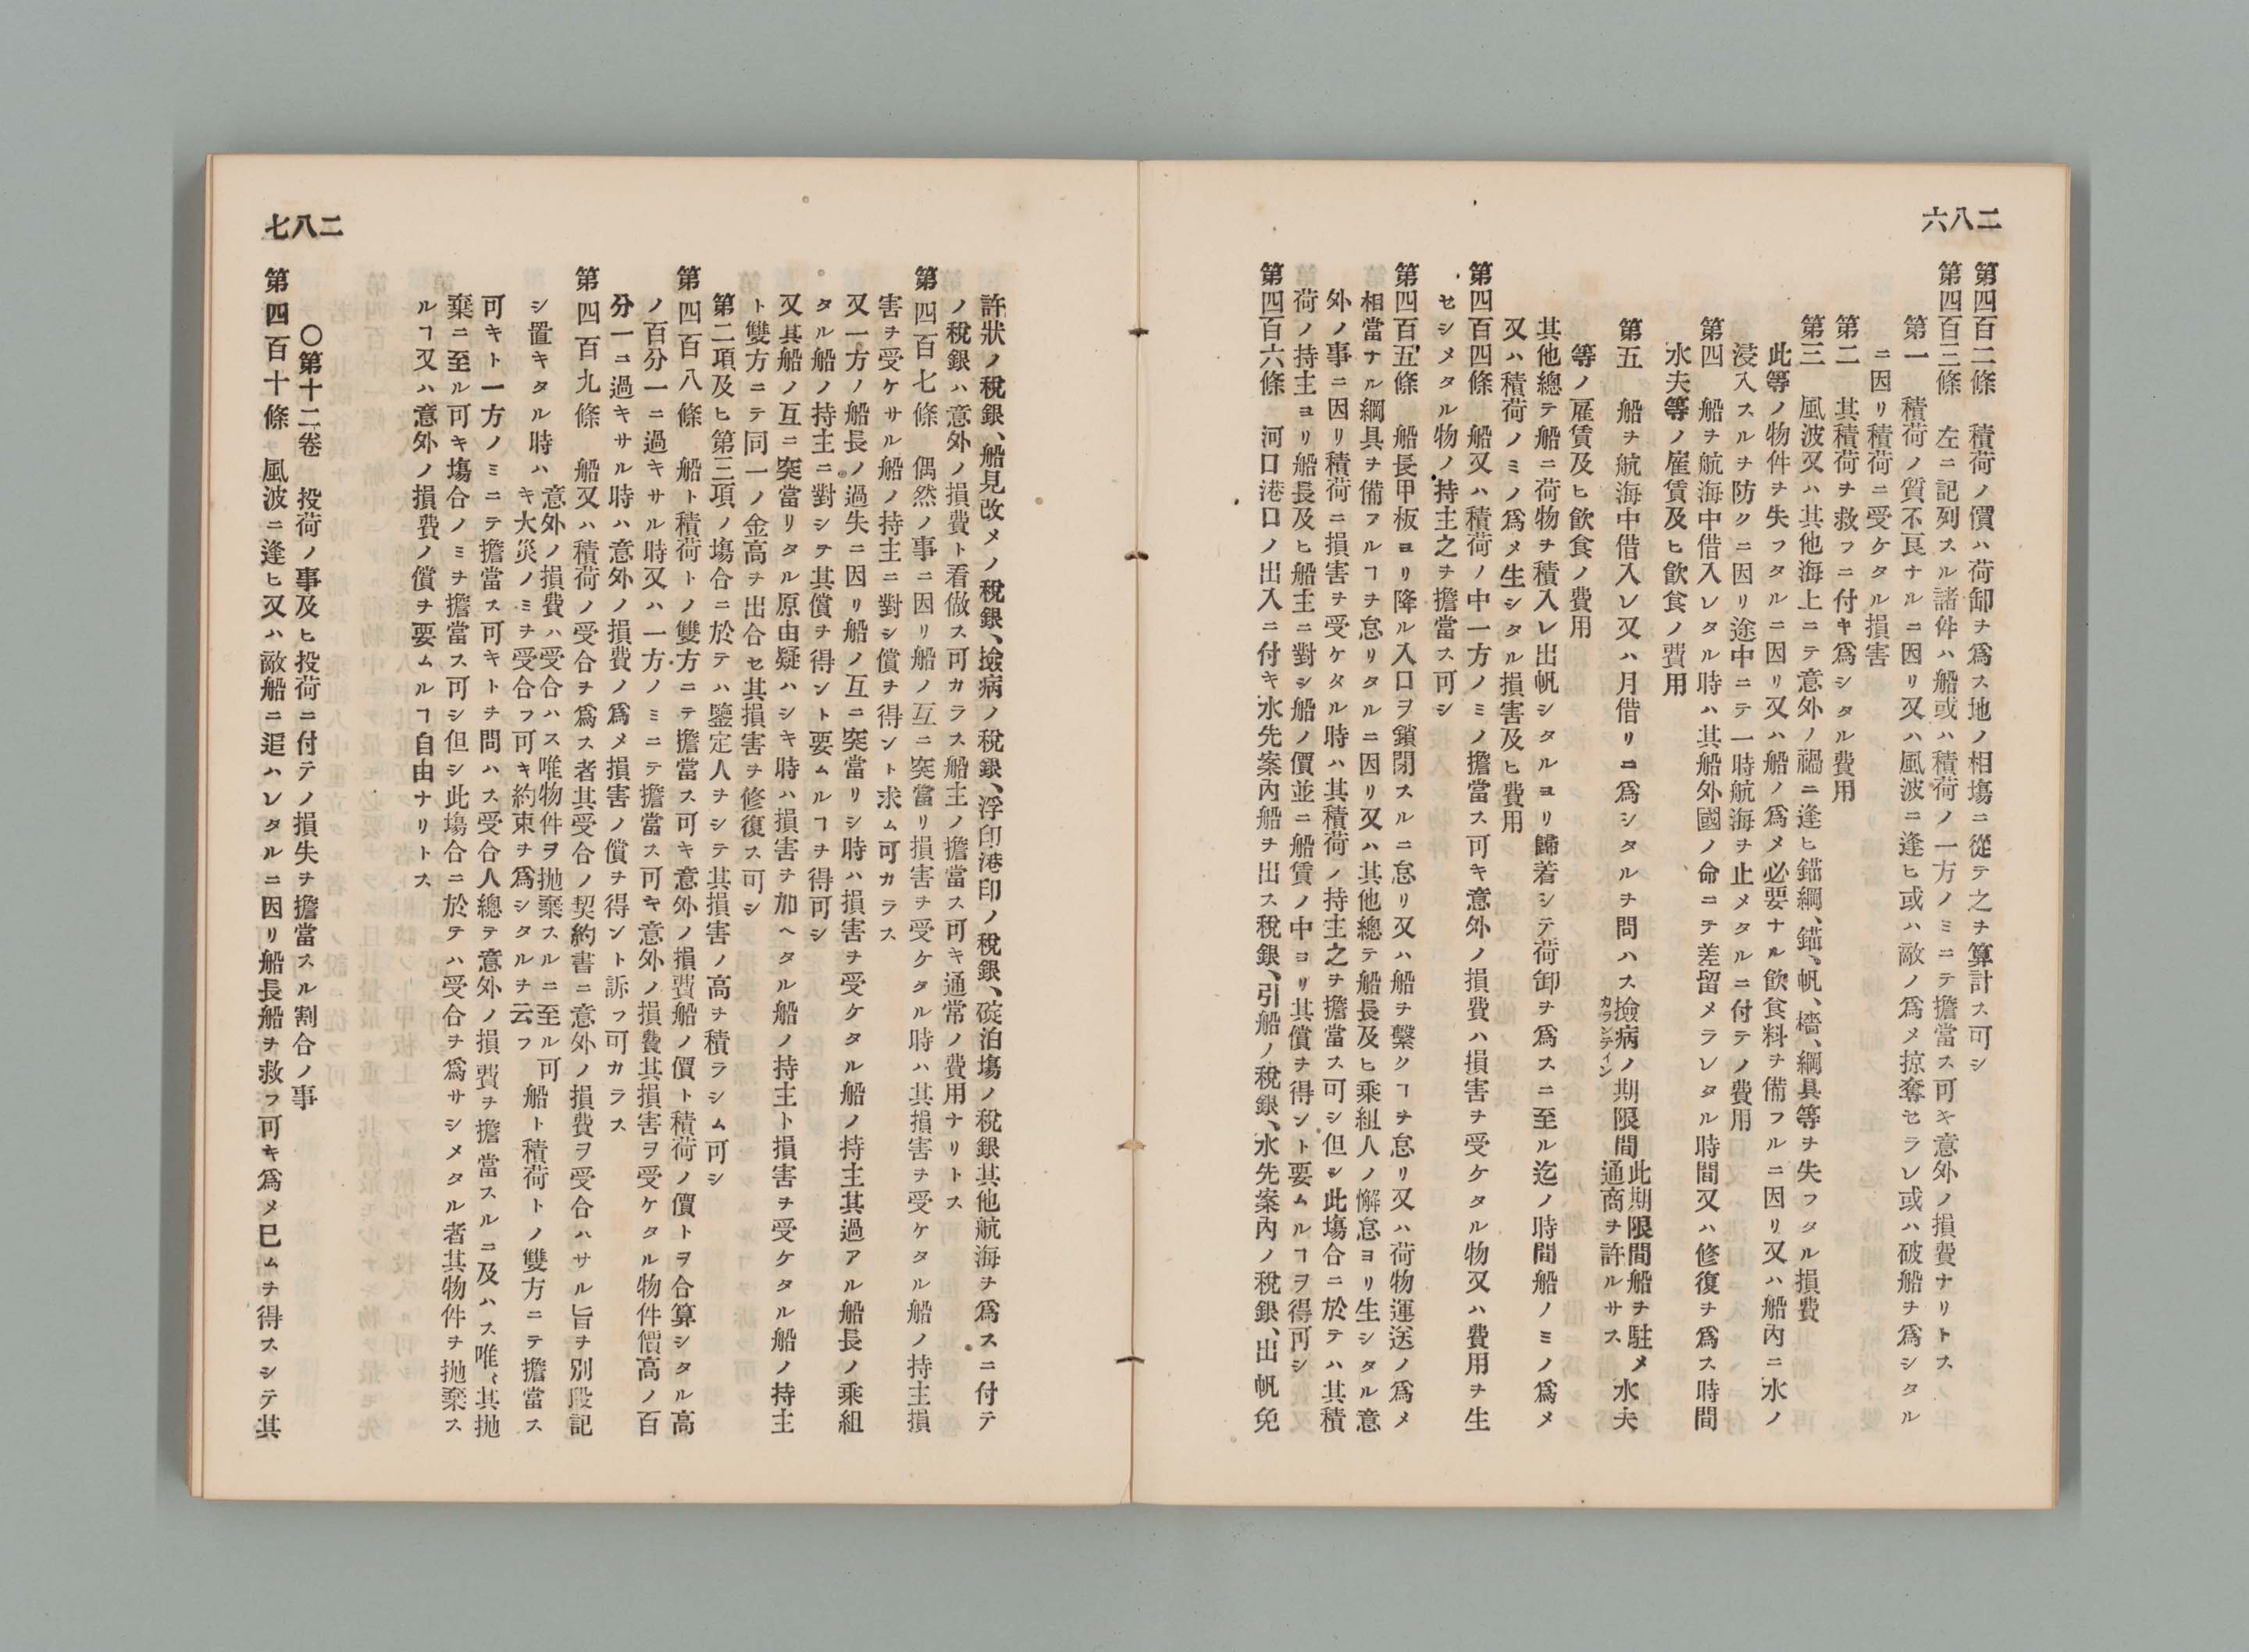 二八六
第四百二條　積荷ノ價ハ荷卸ヲ爲ス地ノ相塲ニ從テ之ヲ算計ス可シ
第四百三條　左ニ記列スル諸件ハ船或ハ積荷ノ一方ノミニテ擔當ス可キ意外ノ損費ナリトス
第一　積荷ノ質不良ナルニ因リ又ハ風波ニ逢ヒ或ハ敵ノ爲メ掠奪セラレ或ハ破船ヲ爲シタル
ニ因リ積荷ニ受ケタル損害
第二　其積荷ヲ救フニ付キ爲シタル費用
第三　風波又ハ其他海上ニテ意外ノ禍ニ逢ヒ錨綱、錨、帆、檣、綱具等ヲ失フタル損費
此等ノ物件ヲ失フタルニ因リ又ハ船ノ爲メ必要ナル飮食料ヲ備フルニ因リ又ハ船內ニ水ノ
浸入スルヲ防クニ因リ途中ニテ一時航海ヲ止メタルニ付テノ費用
第四　船ヲ航海中借入レタル時ハ其船外國ノ命ニテ差留メラレタル時間又ハ修復ヲ爲ス時間
水夫等ノ雇賃及ヒ飮食ノ費用
第五　船ヲ航海中借入レ又ハ月借リニ爲シタルヲ問ハス撿病ノ期限間此期限間船ヲ駐メ通商ヲ許ルサス水夫
カランテイン
等ノ雇賃及ヒ飮食ノ費用
其他總テ船ニ荷物ヲ積入レ出帆シタルヨリ歸着シテ荷卸ヲ爲スニ至ル迄ノ時間船ノミノ爲メ
又ハ積荷ノミノ爲メ生シタル損害及ヒ費用
第四百四條　船又ハ積荷ノ中一方ノミノ擔當ス可キ意外ノ損費ハ損害ヲ受ケタル物又ハ費用ヲ生
セシメタル物ノ持主之ヲ擔當ス可シ
第四百五條　船長甲板ヨリ降ル入口ヲ鎖閉スルニ怠リ又ハ船ヲ繫クヿヲ怠リ又ハ荷物運送ノ爲メ
相當ナル綱具ヲ備フルヿヲ怠リタルニ因リ又ハ其他總テ船長及ヒ乘組人ノ懈怠ヨリ生シタル意
外ノ事ニ因リ積荷ニ損害ヲ受ケタル時ハ其積荷ノ持主之ヲ擔當ス可シ但シ此塲合ニ於テハ其積
荷ノ持主ヨリ船長及ヒ船主ニ對シ船ノ價並ニ船賃ノ中ヨリ其償ヲ得ント要ムルヿヲ得可シ
第四百六條　河口港口ノ出入ニ付キ水先案內船ヲ出ス稅銀、引船ノ稅銀、水先案內ノ稅銀、出帆免
二八七
許狀ノ稅銀、船見改メノ稅銀、撿病ノ稅銀、浮印港印ノ稅銀、碇泊塲ノ稅銀其他航海ヲ爲スニ付テ
ノ稅銀ハ意外ノ損費ト看做ス可カラス船主ノ擔當ス可キ通常ノ費用ナリトス
第四百七條　偶然ノ事ニ因リ船ノ互ニ突當リ損害ヲ受ケタル時ハ其損害ヲ受ケタル船ノ持主損
害ヲ受ケサル船ノ持主ニ對シ償ヲ得ント求ム可カラス
又一方ノ船長ノ過失ニ因リ船ノ互ニ突當リシ時ハ損害ヲ受ケタル船ノ持主其過アル船長ノ乘組
タル船ノ持主ニ對シテ其償ヲ得ント要ムルヿヲ得可シ
又其船ノ互ニ突當リタル原由疑ハシキ時ハ損害ヲ加ヘタル船ノ持主ト損害ヲ受ケタル船ノ持主
ト雙方ニテ同一ノ金高ヲ出合セ其損害ヲ修復ス可シ
第二項及ヒ第三項ノ塲合ニ於テハ鑒定人ヲシテ其損害ノ高ヲ積ラシム可シ
第四百八條　船ト積荷トノ雙方ニテ擔當ス可キ意外ノ損費船ノ價ト積荷ノ價トヲ合算シタル高
ノ百分一ニ過キサル時又ハ一方ノミニテ擔當ス可キ意外ノ損費其損害ヲ受ケタル物件價高ノ百
分一ニ過キサル時ハ意外ノ損費ノ爲メ損害ノ償ヲ得ント訴フ可カラス
第四百九條　船又ハ積荷ノ受合ヲ爲ス者其受合ノ契約書ニ意外ノ損費ヲ受合ハサル旨ヲ別段記
シ置キタル時ハ意外ノ損費ハ受合ハス唯物件ヲ拋棄スルニ至ル可キ大災ノミヲ受合フ可キ約束ヲ爲シタルヲ云フ船ト積荷トノ雙方ニテ擔當ス
可キト一方ノミニテ擔當ス可キトヲ問ハス受合人總テ意外ノ損費ヲ擔當スルニ及ハス唯〻其拋
棄ニ至ル可キ塲合ノミヲ擔當ス可シ但シ此塲合ニ於テハ受合ヲ爲サシメタル者其物件ヲ拋棄ス
ルヿ又ハ意外ノ損費ノ償ヲ要ムルヿ自由ナリトス
〇第十二卷　投荷ノ事及ヒ投荷ニ付テノ損失ヲ擔當スル割合ノ事
第四百十條　風波ニ逢ヒ又ハ敵船ニ追ハレタルニ因リ船長船ヲ救フ可キ爲メ已ムヲ得スシテ其